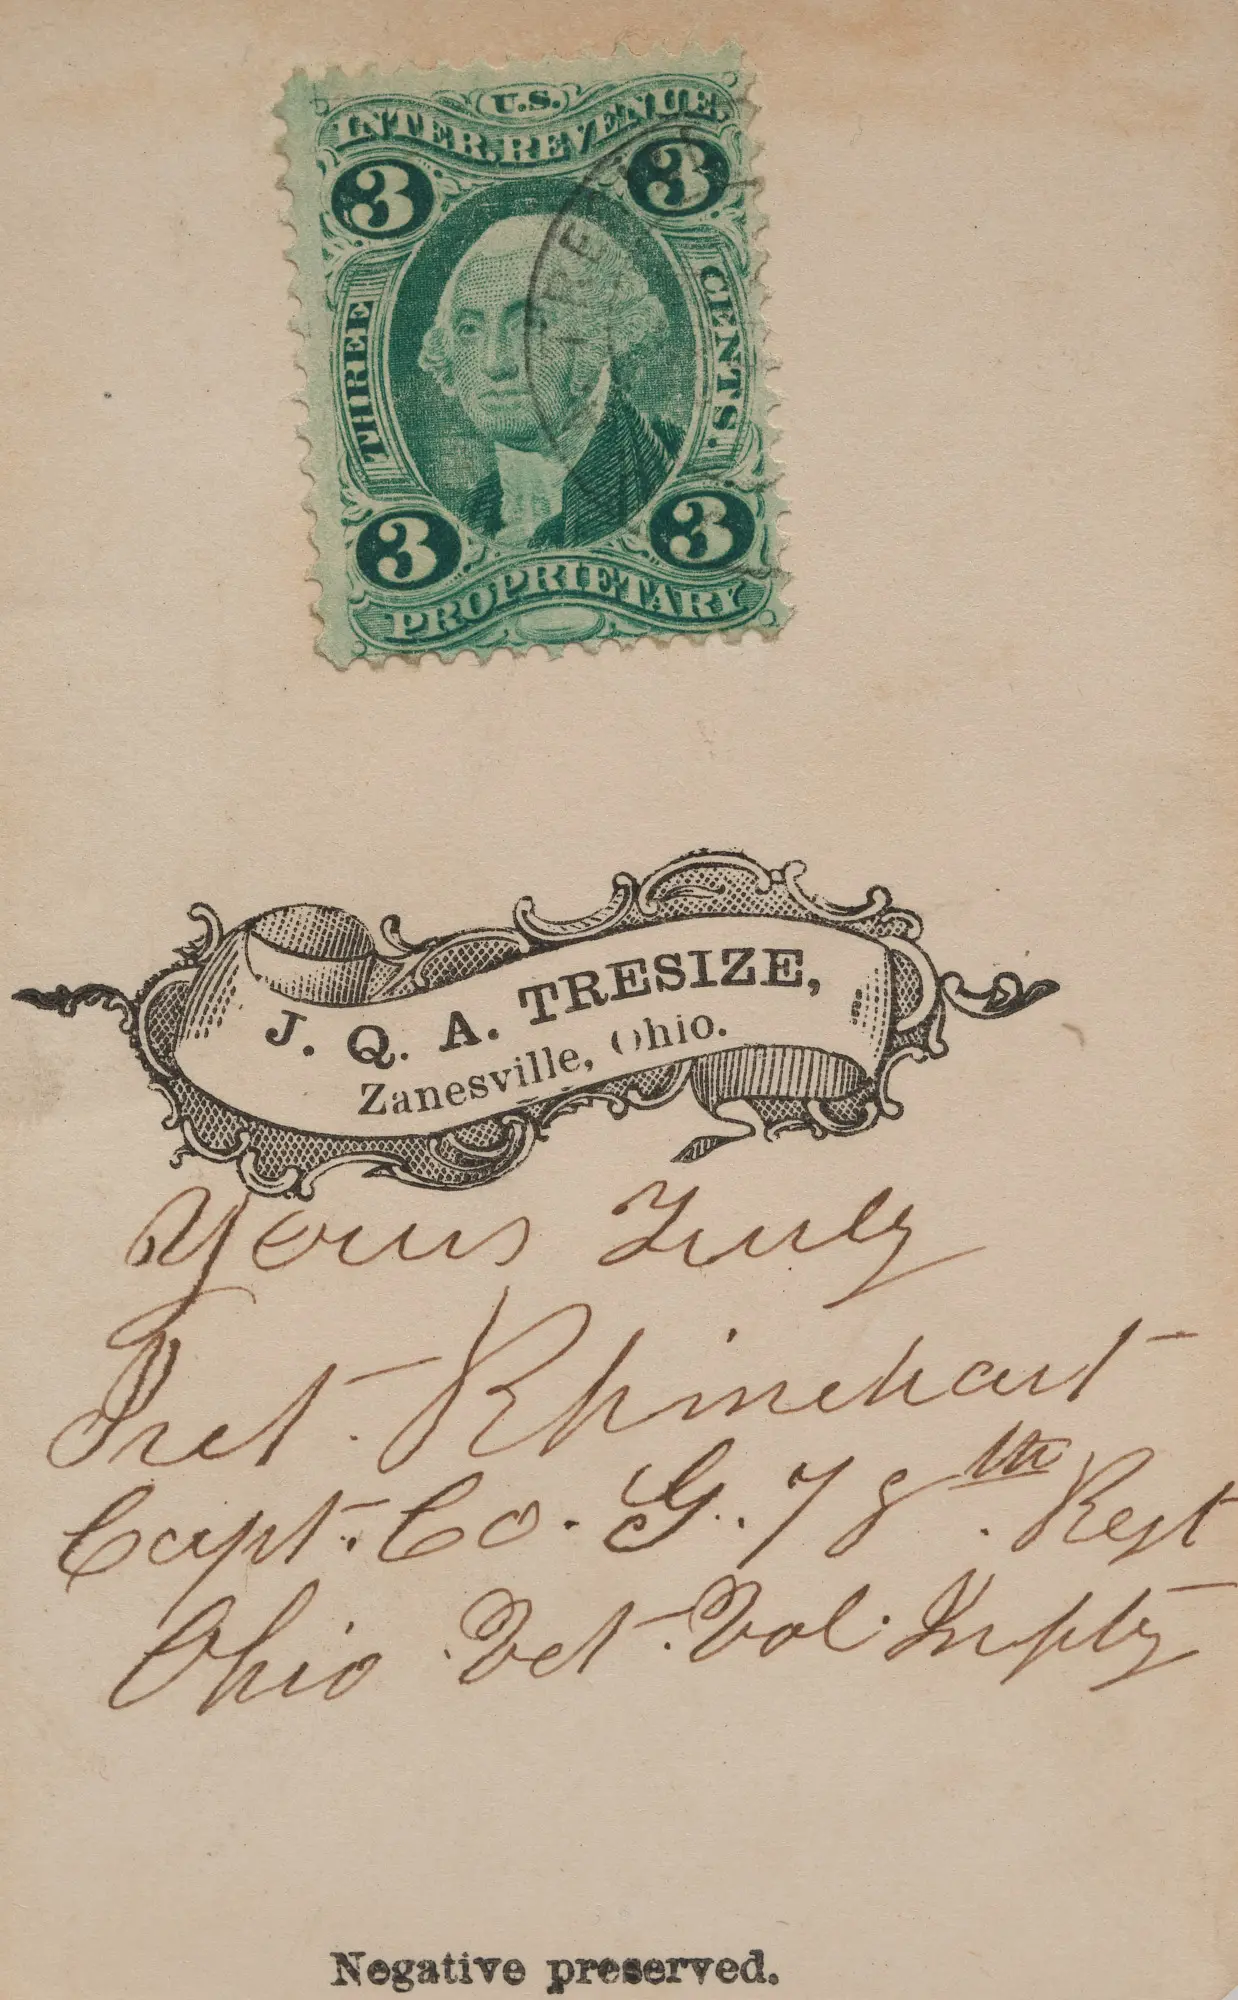 U.S.
INTER. REVENUE.
3 3
THREE
CENTS.
3 3
PROPRIETARY
J. Q. A. TRESIZE,
Zanesville, Ohio.
Yours Truly
Rhinehart
Capt. Co. G. 78th. Regt
Ohio Vet. Vol. Infty
Negative preserved.